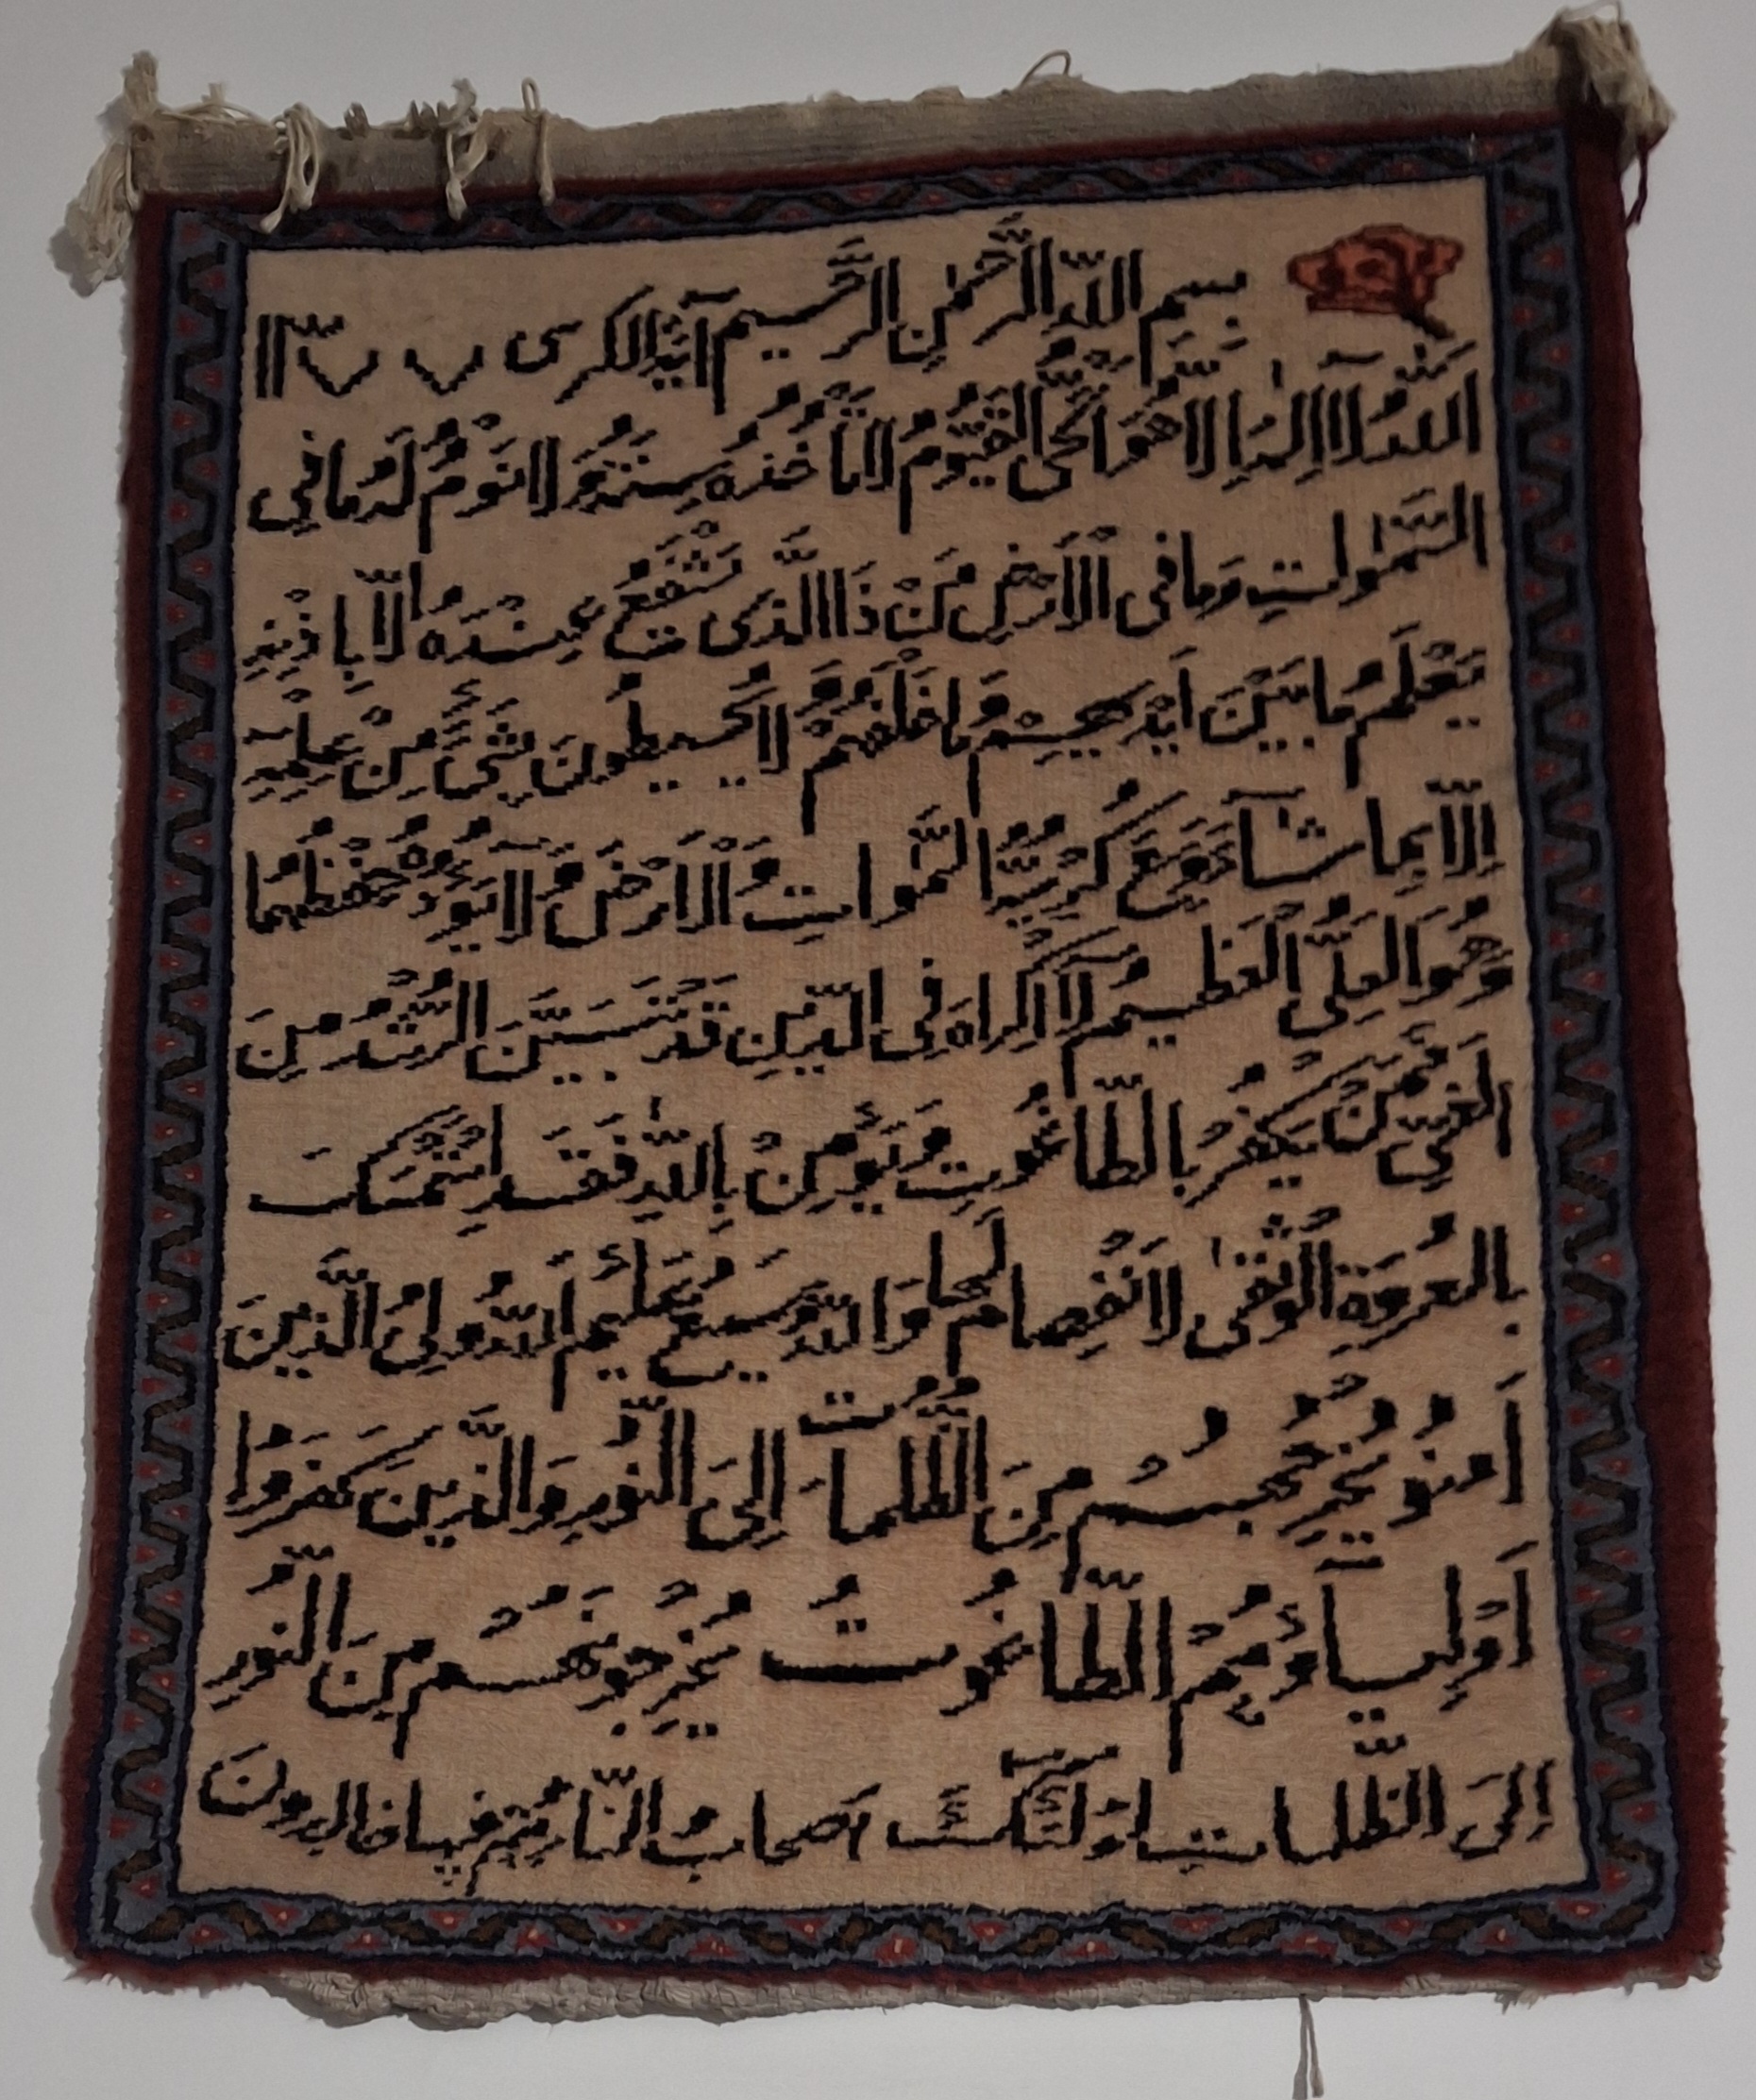 بسم اللّه الرَّحْمٰنِ الرَّحيم آيَةُ الكرسى ٧ ٧٣١١
اَللّٰهُ لآ اِلٰهَ اِلّا هُوَ اَلْحَىُّ الْقَيُّومُ لا تَأْخُذُهُ سِنَةٌ وَ لا نَوْمٌ لَهُ ما فِى
السَّمٰواتِ وَ ما فى الْاَرْضِ مَنْ ذَا الَّذى يَشْفَعُ عِنْدَهُ اِلّا بِاِذْنِهِ
يَعْلَمُ ما بَيْنَ اَيْديهِمْ وَ ما خَلْفَهُمْ وَ لا يُحيطُونَ بِشَىْءٍ مِنْ عِلْمِهِ
اِلّا بِما شآءَ وَسِعَ كُرْسِيُّهُ السَّمٰواتِ وَ الْاَرْضَ وَ لا يَؤُدُهُ حِفْظُهُما
وَ هُوَ العَلِىُّ الْعَظيمُ لآ اِكْراهَ فِى الدّينِ قَدْ تَبَيَّنَ الرُّشْدُ مِنَ
الْغَىِّ فَمَنْ يَكْفُرْ بِالطّاغُوتِ وَ يُؤْمِنْ بِاللّٰهِ فَقَدِ اسْتَمْسَكَ
بِالْعُرْوَةِ الْوُثْقىٰ لاَ انْفِصامَ لَها وَ اللّهُ سَميعٌ عَليمٌ اَللّهُ وَلِىُّ الَّذينَ
اَمنُو يُخْرِجُهُمْ مِنَ الظُّلُماتِ اِلَى النُّورِ وَ الَّذينَ كَفَرُوا
اَوْلِيآؤُهُمُ الطّاغُوتُ يُخْرِجُونَهُمْ مِنَ النُّورِ
اِلَى الظُّلماتِ اوُلٰئِكَ اَصحابُ النّارِ هُمْ فيها خالِدونَ